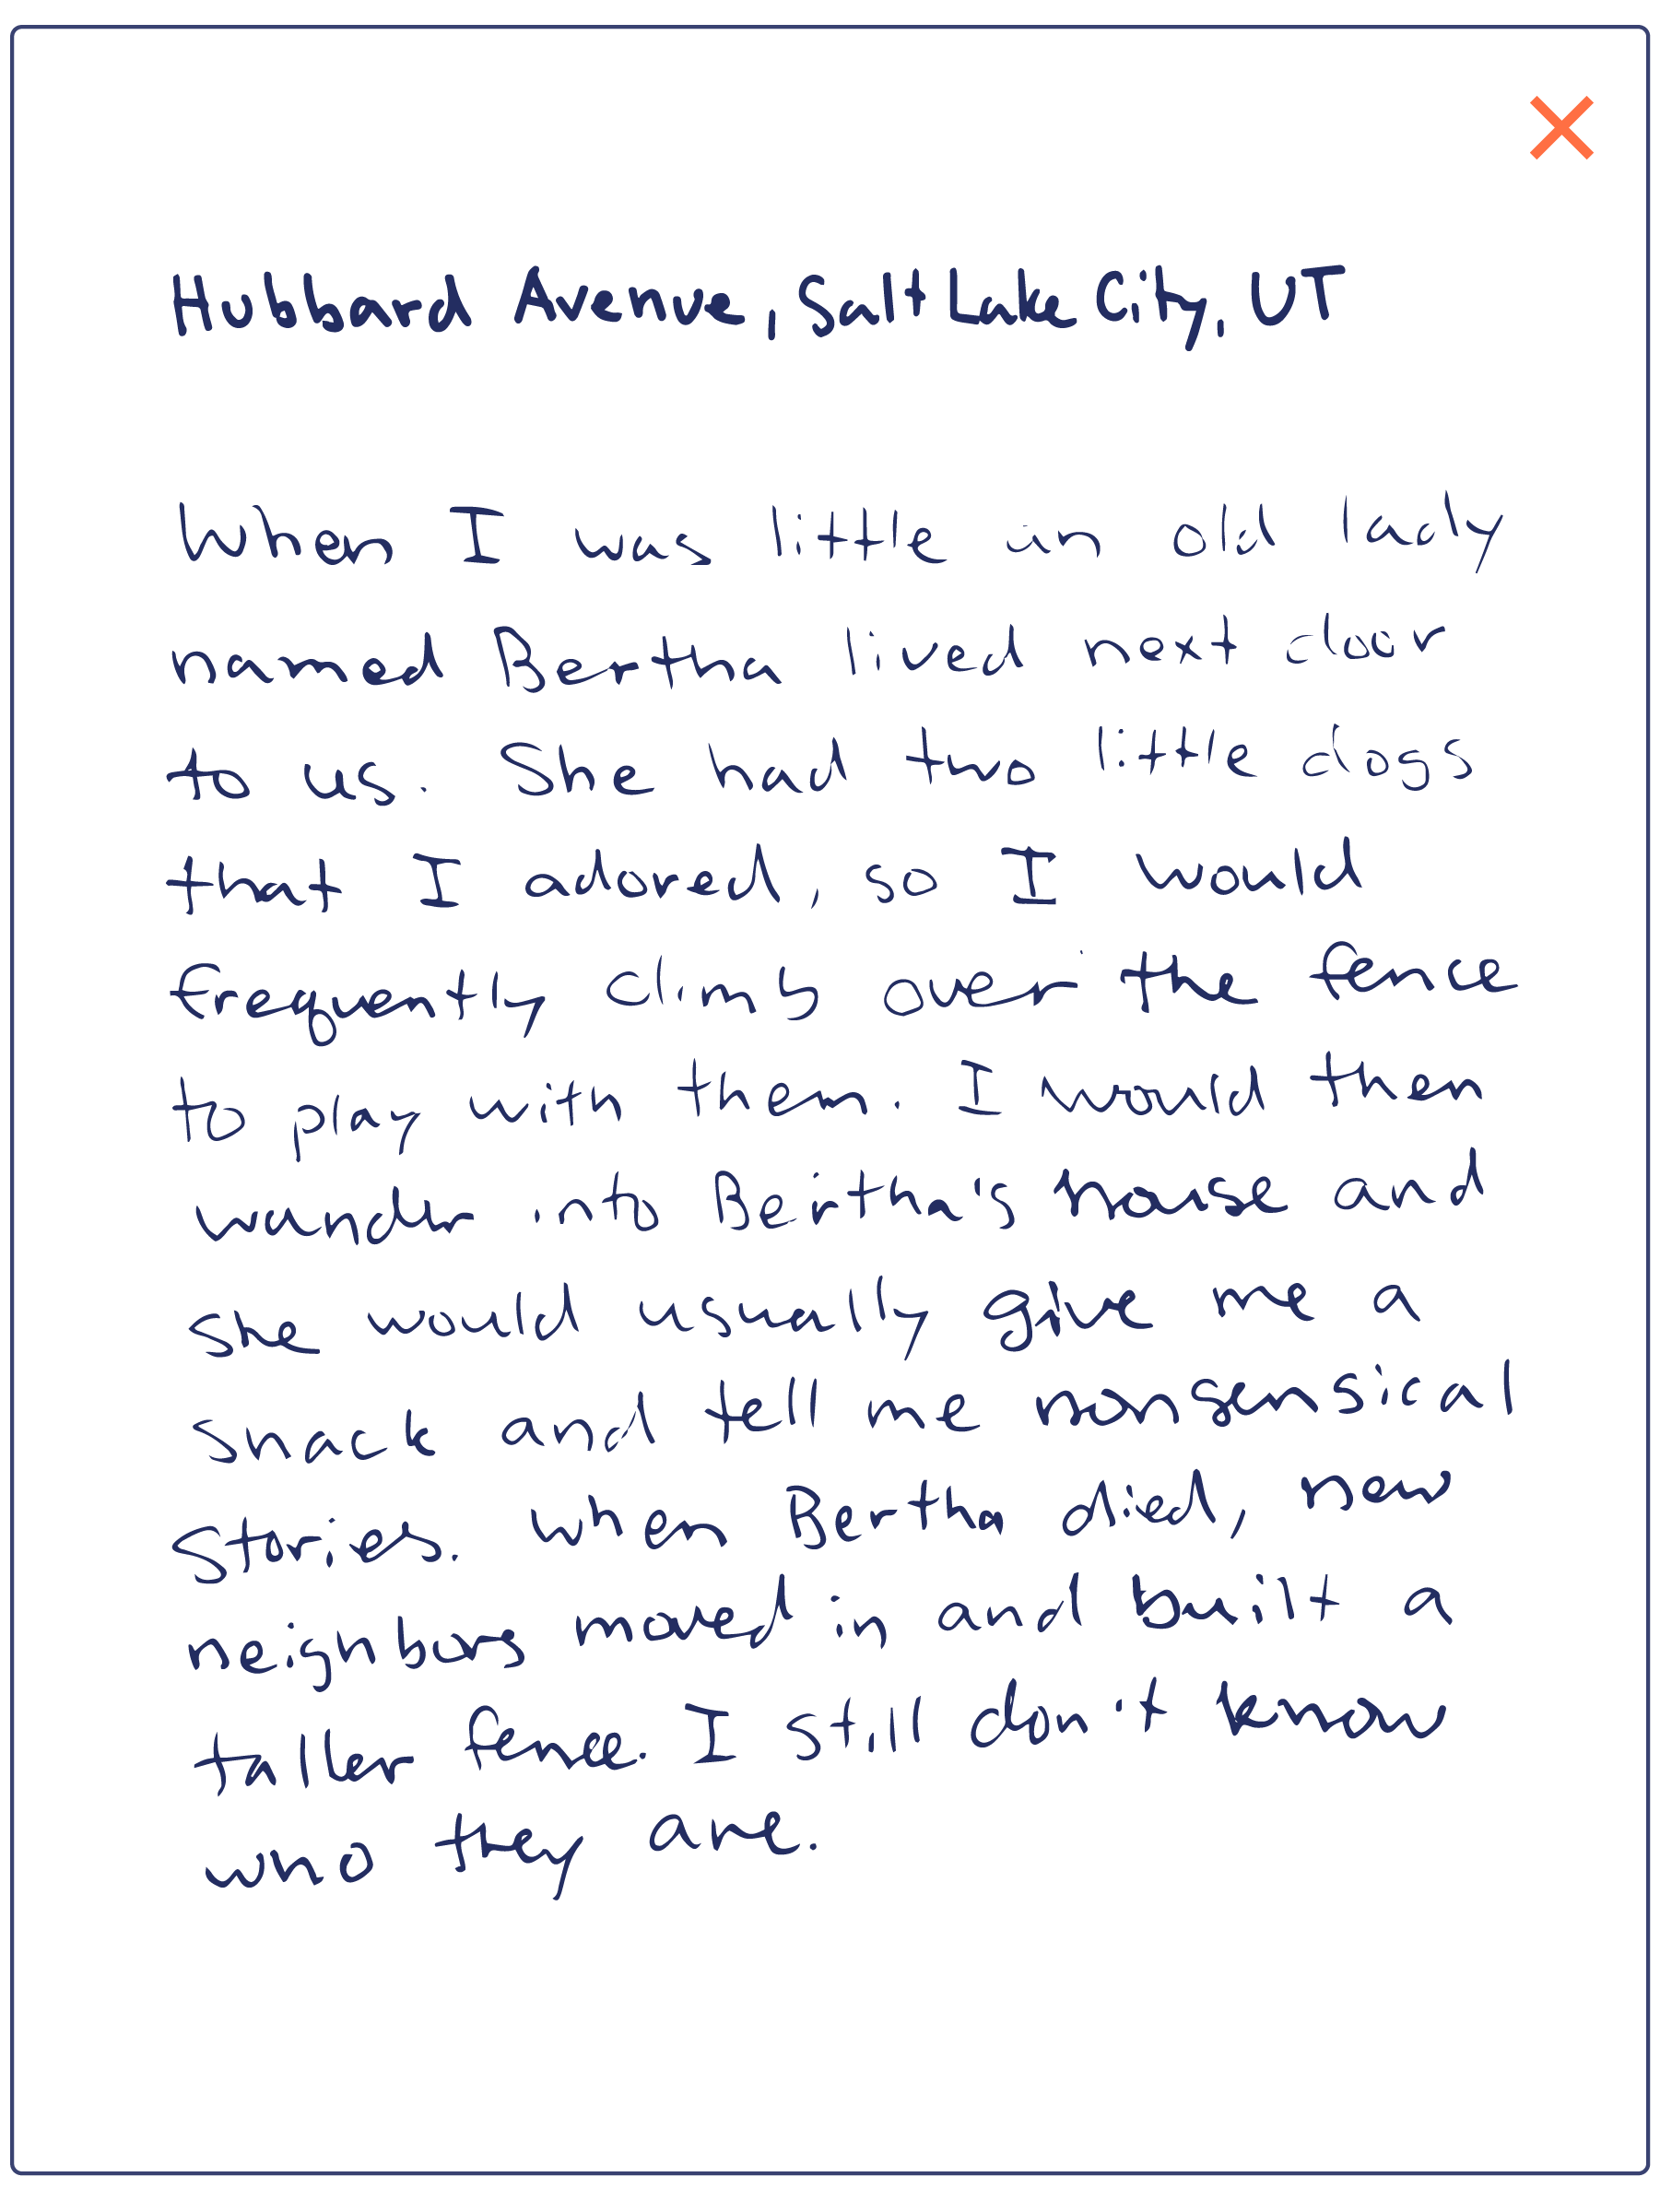 Hubbard Avenue, Salt Lake City, UT
When I was little an old lady
named Bertha lived next door
to us. She had two little dogs
that I adored, so I would
frequently climb over the fence
to play with them. I would then
wander into Bertha's house and
she would usually give me a
snack and tell me nonsensical
stories. When Bertha died, new
neighbors moved in and built a
taller fence. I still don't know
who they are.